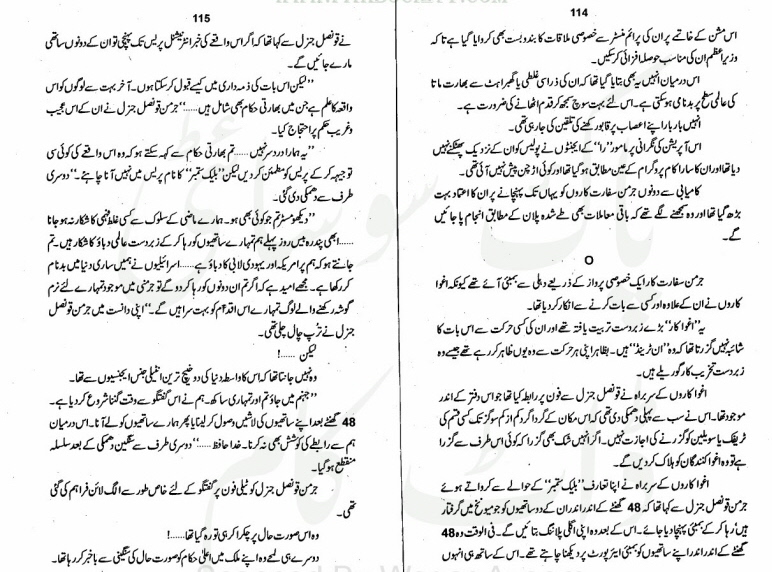 114
اس مشن کے خاتمے پر ان کی پرائم منسٹر سے خصوصی ملاقات کا بندوبست بھی کروایا گیا ہے تاکہ
وزیراعظم ان کی مناسب حوصلہ افزائی کر سکیں۔
اس درمیان انہیں یہ بھی بتایا گیا تھا کہ ان کی ذرا سی غلطی یا گھبراہٹ سے بھارت ماتا
کی عالمی سطح پر بدنامی ہو سکتی ہے۔ اس لئے بہت سوچ سمجھ کر قدم اٹھانے کی ضرورت ہے۔
انہیں بار بار اپنے اعصاب پر قابو رکھنے کی تلقین کی جا رہی تھی۔
اس آپریشن کی نگرانی پر مامور ”را“ کے ایجنٹوں نے پولیس کو ان کے نزدیک پھٹکنے نہیں
دیا تھا اور ان کا سارا کام پروگرام کے عین مطابق ہو گیا تھا اور کوئی اڑچن پیش نہیں آئی تھی۔
کامیابی سے دونوں جرمن سفارت کاروں کو یہاں تک پہنچانے پر ان کا اعتماد بہت
بڑھ گیا تھا اور وہ سمجھنے لگے تھے کہ باقی معاملات بھی طے شدہ پلان کے مطابق انجام پا جائیں
گے۔
O
جرمن سفارت کار ایک خصوصی پرواز کے ذریعے دہلی سے بمبئی آئے تھے کیونکہ اغوا
کاروں نے ان کے علاوہ اور کسی سے بات کرنے سے انکار کر دیا تھا۔
یہ ”اغوا کار“ بڑے زبردست تربیت یافتہ تھے اور ان کی کسی حرکت سے اس بات کا
شائبہ نہیں گزرتا تھا کہ وہ ”ان ٹرینڈ“ ہیں۔ بظاہر اپنی ہر حرکت سے وہ یوں ظاہر کر رہے تھے جیسے وہ
زبردست تخریب کار گوریلے ہیں۔
اغوا کاروں کے سربراہ نے قونصل جنرل سے فون پر رابطہ کیا تھا جو اس دفتر کے اندر
موجود تھا۔ اس نے سب سے پہلی دھمکی دی تھی کہ اس مکان کے گرداگرد کم از کم سو گز تک کسی قسم کی
ٹریفک یا سویلین کو گزرنے کی اجازت نہیں۔ اگر انہیں شک بھی گزرا کہ کوئی اس طرف سے گزرا
ہے تو وہ اغوا کنندگان کو ہلاک کر دیں گے۔
اغوا کاروں کے سربراہ نے اپنا تعارف ”بلیک ستمبر“ کے حوالے سے کرواتے ہوئے
جرمن قونصل جنرل سے کہا تھا کہ 48 گھنٹے کے اندر اندر ان کے دو ساتھیوں کو جو میونخ میں گرفتار
ہیں رہا کر کے بمبئی پہنچا دیا جائے۔ اس کے بعد وہ اپنی اگلی پلاننگ بتائیں گے۔ فی الوقت وہ 48
گھنٹے کے اندر اندر اپنے ساتھیوں کو بمبئی ایئرپورٹ پر دیکھنا چاہتے تھے۔ اس کے ساتھ ہی انہوں
115
نے قونصل جنرل سے کہا تھا کہ اگر اس واقعے کی خبر انٹرنیشنل پریس تک پہنچی تو ان کے دونوں ساتھی
مارے جائیں گے۔
”لیکن اس بات کی ذمہ داری میں کیسے قبول کر سکتا ہوں۔ آخر بہت سے لوگوں کو اس
واقعہ کا علم ہے جن میں بھارتی حکام بھی شامل ہیں......“ جرمن قونصل جنرل نے ان کے اس عجیب
و غریب حکم پر احتجاج کیا۔
”یہ ہمارا دردسر نہیں...... تم بھارتی حکام سے کہہ سکتے ہو کہ وہ اس واقعے کی کوئی سی
توجیہہ کر کے پریس کو مطمئن کر دیں لیکن ”بلیک ستمبر“ کا نام پریس میں نہیں آنا چاہئے۔“ دوسری
طرف سے دھمکی دی گئی۔
”دیکھو مسٹر تم جو کوئی بھی ہو۔ ہمارے ماضی کے سلوک سے کسی غلط فہمی کا شکار نہ ہو جانا
...... ابھی پندرہ بیس روز پہلے ہم تمہارے ساتھیوں کو رہا کر کے زبردست عالمی دباؤ کا شکار ہیں۔ تم
جانتے ہو کہ ہم پر امریکہ اور یہودی لابی کا دباؤ ہے...... اسرائیلیوں نے ہمیں ساری دنیا میں بدنام
کر رکھا ہے۔ مجھے امید ہے کہ اگر تم ان دونوں کو رہا کر دو گے تو جرمنی میں موجود تمہارے لئے نرم
گوشہ رکھنے والے لوگ تمہارے اس اقدام کو بہت سراہیں گے۔“ اپنی دانست میں جرمن قونصل
جنرل نے ترپ چال چلی تھی۔
لیکن ......!
وہ نہیں جانتا تھا کہ اس کا واسطہ دنیا کی دو خبیث ترین انٹیلی جنس ایجنسیوں سے تھا۔
”جہنم میں جاؤ تم اور تمہاری ساکھ۔ ہم نے اس گفتگو سے وقت گننا شروع کر دیا ہے۔
48 گھنٹے بعد اپنے ساتھیوں کی لاشیں وصول کر لینا یا پھر ہمارے ساتھیوں کو لے آنا۔ اس درمیان
ہم سے رابطے کی کوشش بھی نہ کرنا۔ خدا حافظ......“ دوسری طرف سے سنگین دھمکی کے بعد سلسلہ
منقطع ہو گیا۔
جرمن قونصل جنرل کو ٹیلی فون پر گفتگو کے لئے خاص طور سے الگ لائن فراہم کی گئی
تھی۔
وہ اس صورت حال پر چکرا کر ہی تو رہ گیا تھا......!
دوسرے ہی لمحے وہ اپنے ملک میں اعلیٰ حکام کو صورت حال کی سنگینی سے باخبر کر رہا تھا۔